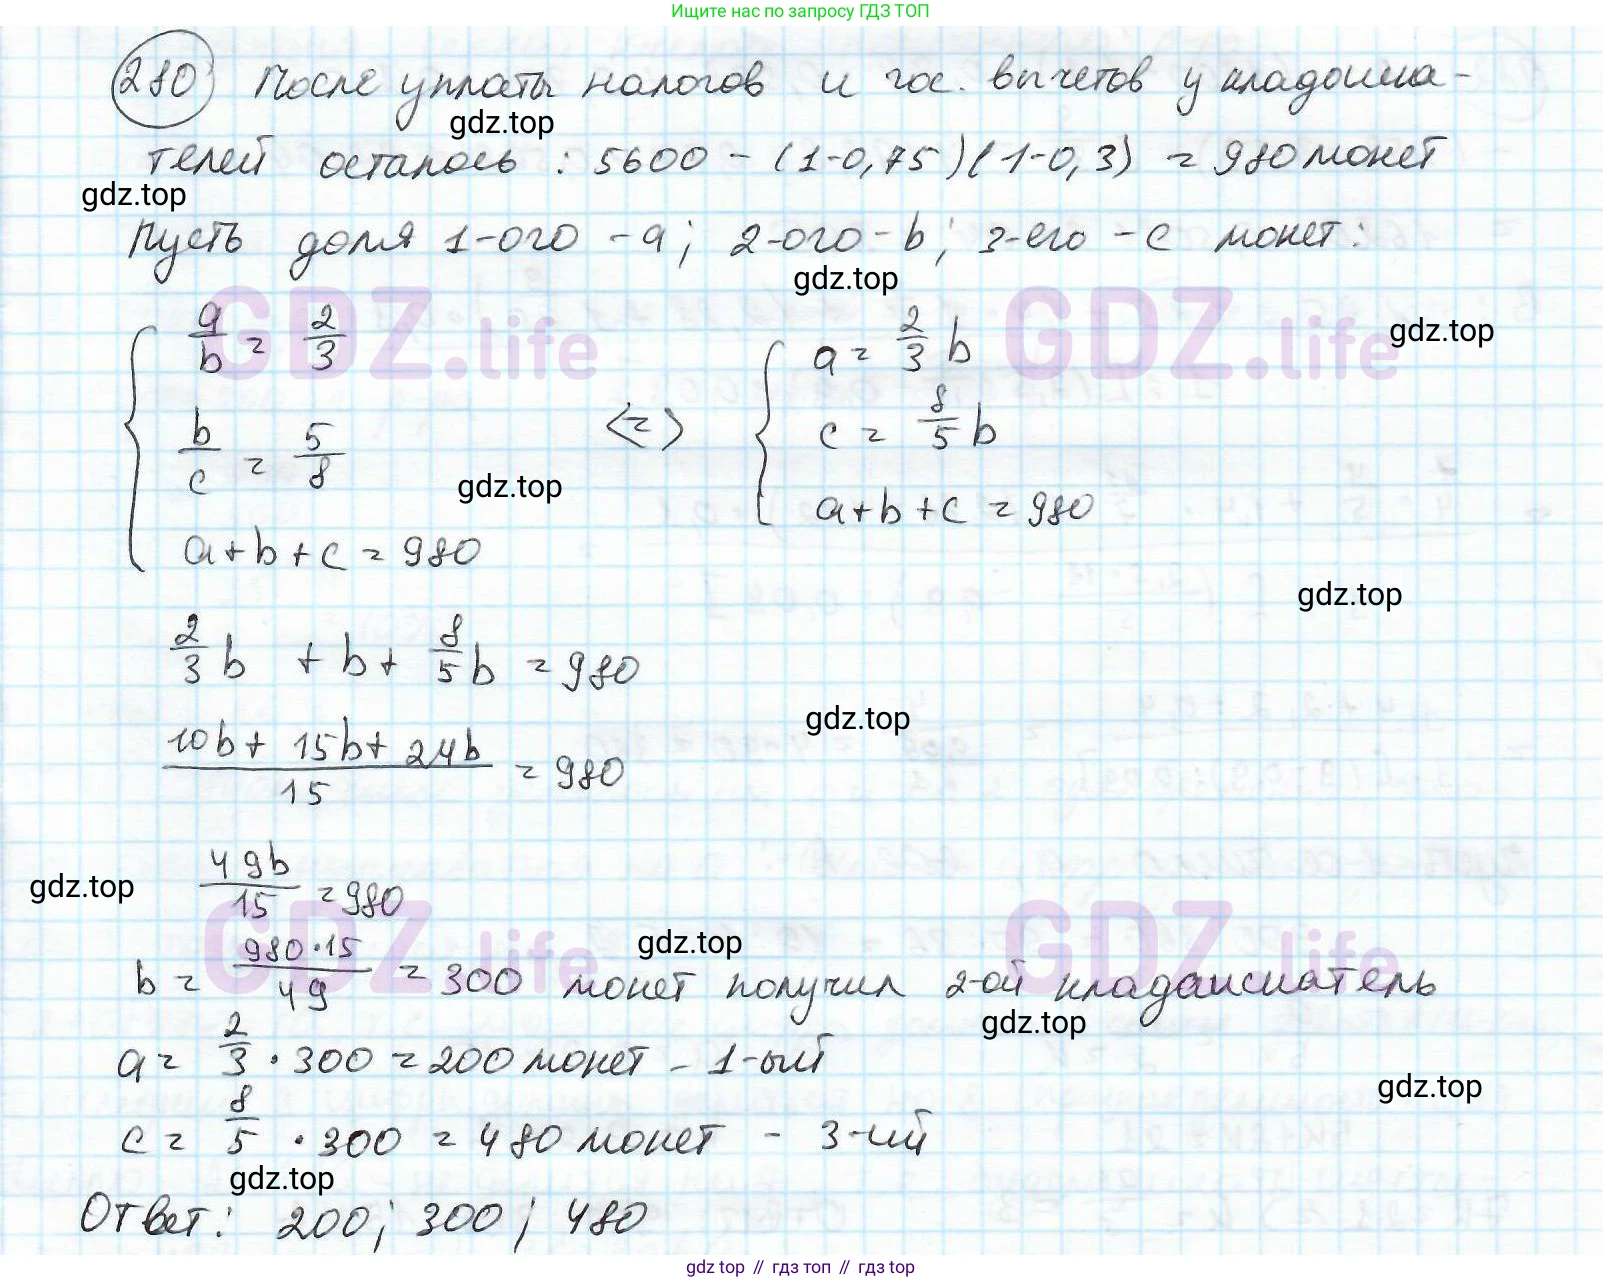 Ищите нас по запросу ГДЗ ТОП
280 После уплаты налогов и гос. вычетов у кладоиска-
gdz.top
телей осталось : 5600 - (1-0,75)(1-0,3) = 980 монет
gdz.top
Пусть доля 1-ого - a; 2-ого - b; 3-его - c монет:
gdz.top
GDZ.life GDZ.life
a/b = 2/3
b/c = 5/8
a+b+c = 980
<=>
a = 2/3 b
c = 8/5 b
a+b+c = 980
gdz.top
gdz.top
gdz.top
2/3 b + b + 8/5 b = 980
gdz.top
10b + 15b + 24b / 15 = 980
gdz.top
49b / 15 = 980
GDZ.life GDZ.life
gdz.top
b = 980·15 / 49 = 300 монет получил 2-ой кладаискатель
gdz.top
a = 2/3 · 300 = 200 монет - 1-ый
gdz.top
c = 8/5 · 300 = 480 монет - 3-ий
gdz.top
Ответ: 200; 300; 480
gdz.top // гдз топ // гдз top